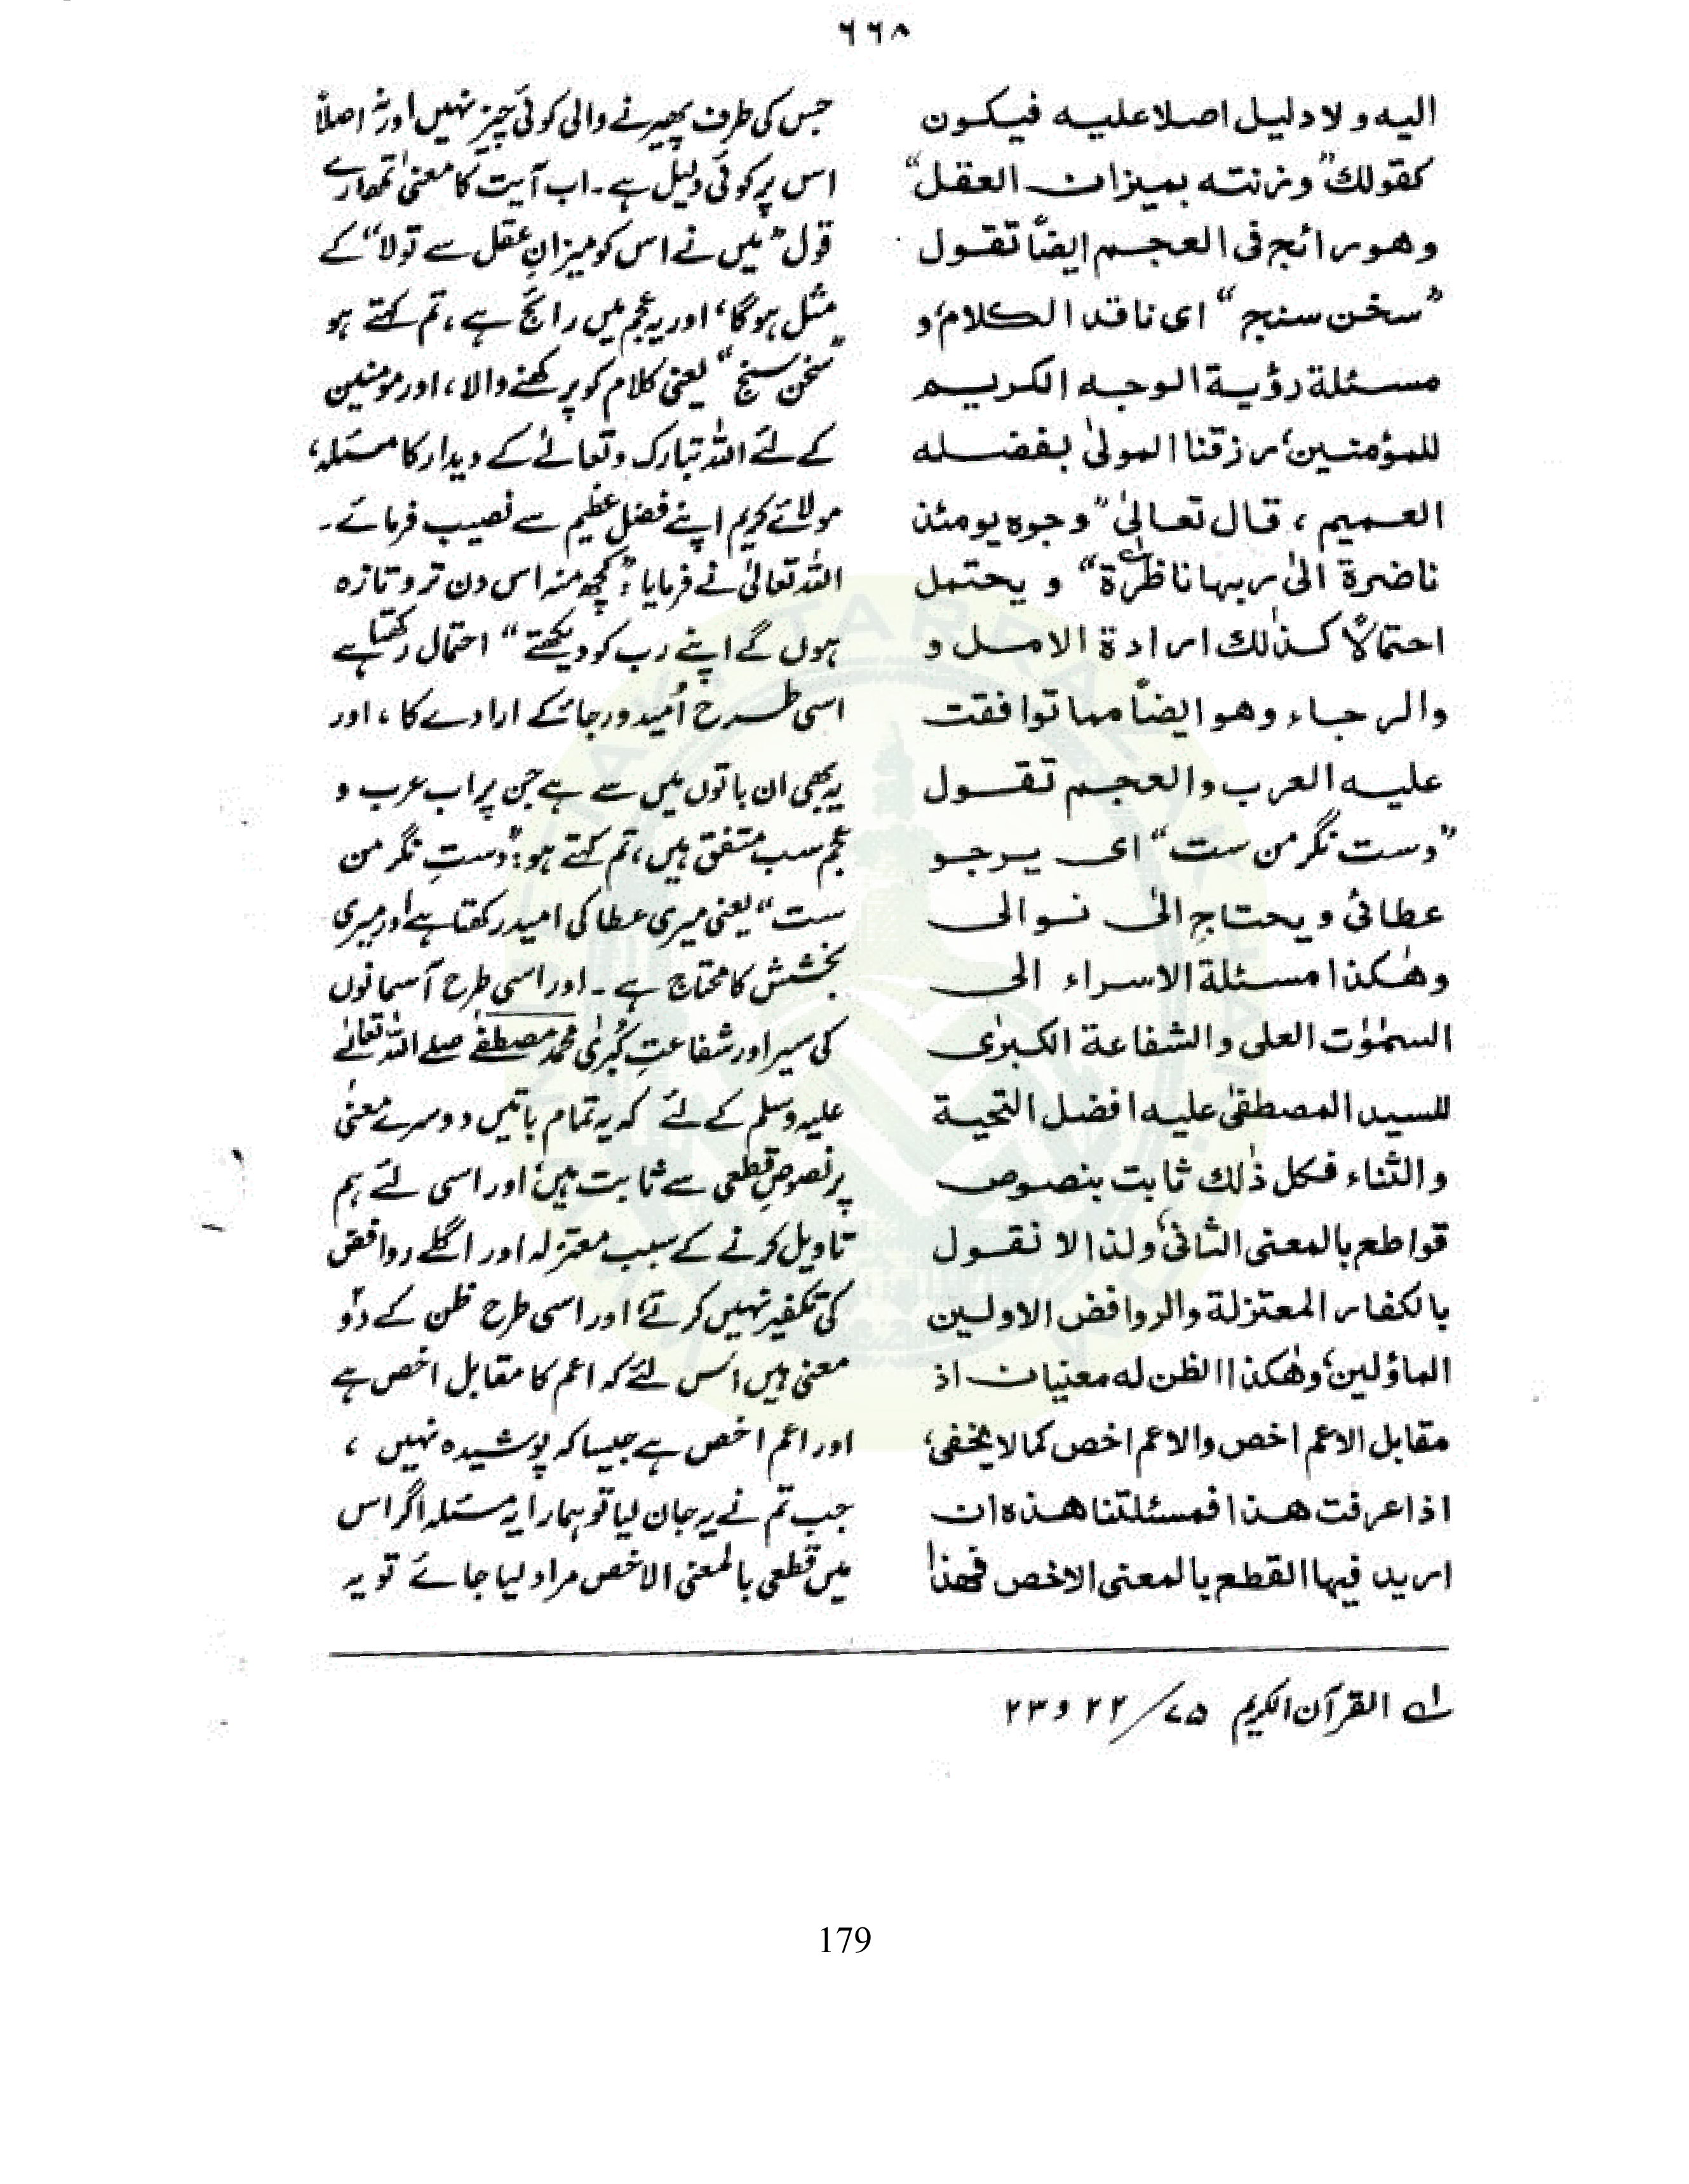 ٦٦٨
اليه ولا دليل اصلا عليه فيكون
كقولك "وزنته بميزان العقل"
وهو رائج فى العجم ايضًا تقول
"سخن سنج" اى ناقد الكلام، و
مسئلة رؤية الوجه الكريم
للمؤمنين، رزقنا المولىٰ بفضله
العميم، قال تعالىٰ "وجوه يومئذ
ناضرة الىٰ ربها ناظرة" ۱؎ و يحتمل
احتمالًا كذٰلك ارادة الامل و
والرجاء وهو ايضًا مما توافقت
عليه العرب والعجم تقول
"دست نگر من ست" اى يرجو
عطائى و يحتاج الىٰ نوالى
وهٰكذا مسئلة الاسراء الى
السمٰوٰت العلى والشفاعة الكبرٰى
للسيد المصطفىٰ عليه افضل التحية
والثناء فكل ذٰلك ثابت بنصوص
قواطع بالمعنى الثانى، ولذا لا نقول
باكفار المعتزلة والروافض الاولين
الماؤلين، وهٰكذا الظن له معنيان اذ
مقابل الاعم اخص والاعم اخص كما لا يخفى،
اذا عرفت هذا فمسئلتنا هذه ان
اريد فيها القطع بالمعنى الاخص فهذا
جس کی طرف پھیرنے والی کوئی چیز نہیں اور نہ اصلاً
اس پر کوئی دلیل ہے۔ اب آیت کا معنیٰ تمھارے
قول "میں نے اس کو میزانِ عقل سے تولا" کے
مثل ہوگا، اور یہ عجم میں رائج ہے، تم کہتے ہو
"سخن سنج" یعنی کلام کو پرکھنے والا، اور مومنین
کے لئے اللہ تبارک وتعالٰے کے دیدار کا مسئلہ،
مولائے کریم اپنے فضلِ عظیم سے نصیب فرمائے۔
اللہ تعالیٰ نے فرمایا: "کچھ منہ اس دن تر و تازہ
ہوں گے اپنے رب کو دیکھتے" احتمال رکھتا ہے
اسی طرح اُمید ورجاء کے ارادے کا، اور
یہ بھی ان باتوں میں سے ہے جن پر اب عرب و
عجم سب متفق ہیں، تم کہتے ہو: "دستِ نگر من
ست" یعنی میری عطا کی امید رکھتا ہے اور میری
بخشش کا محتاج ہے۔ اور اسی طرح آسمانوں
کی سیر اور شفاعتِ کُبرٰی محمد مصطفٰے صلے اللہ تعالٰے
علیہ وسلم کے لئے کہ یہ تمام باتیں دوسرے معنٰی
پر نصوصِ قطعی سے ثابت ہیں، اور اسی لئے ہم
تاویل کرنے کے سبب معتزلہ اور اگلے روافض
کی تکفیر نہیں کرتے، اور اسی طرح ظن کے دو
معنی ہیں اس لئے کہ اعم کا مقابل اخص ہے
اور اعم اخص ہے جیسا کہ پوشیدہ نہیں،
جب تم نے یہ جان لیا تو ہمارا یہ مسئلہ اگر اس
میں قطعی بالمعنی الاخص مراد لیا جائے تو یہ
۱؎ القرآن الکریم ۷۵/ ۲۲ و ۲۳
179